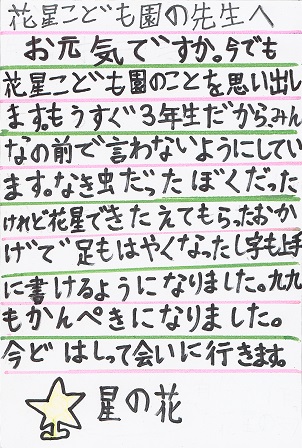 花星こども園の先生へ
お元気ですか。今でも
花星こども園のことを思い出し
ます。もうすぐ3年生だからみん
なの前で言わないようにしてい
ます。なき虫だったぼくだった
けれど花星できたえてもらったおか
げで足もはやくなったし字も上手
に書けるようになりました。九九
もかんぺきになりました。
今どはしって会いに行きます。
星の花